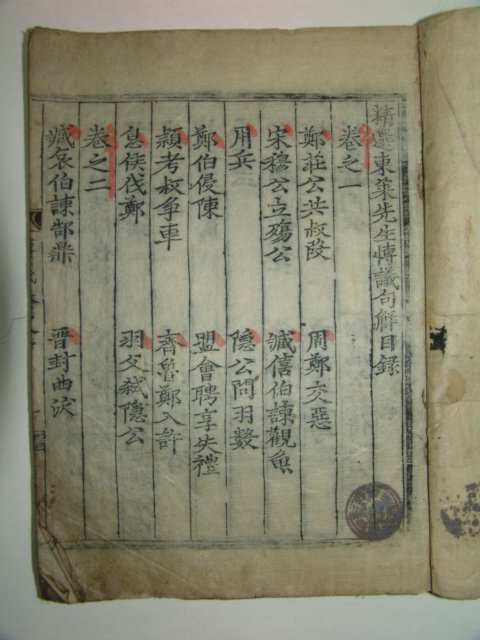 精選東萊先生博議句解目錄
卷之一
鄭莊公共叔段 周鄭交惡
宋穆公立殤公 臧僖伯諫觀魚
用兵 隱公問羽數
鄭伯侵陳 盟會聘享失禮
潁考叔争車 齊魯鄭入許
息侯伐鄭 羽父弑隱公
卷之二
臧哀伯諫郜鼎 晉封曲沃